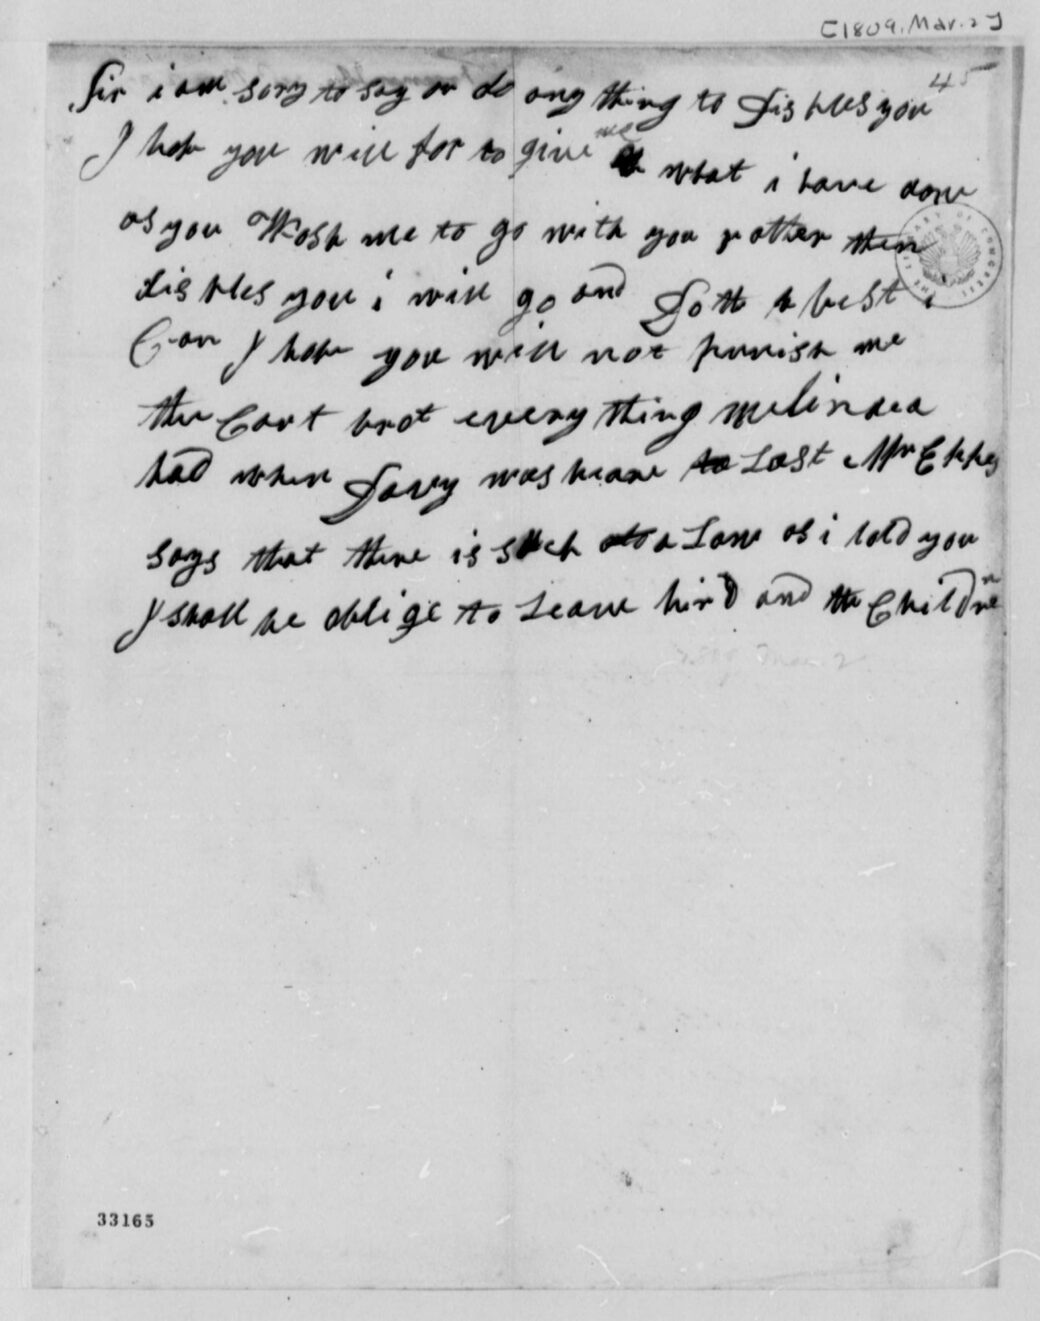 [1809. Mar. 2]
45
Sir i am sory to say or do any thing to Displesyou
I hope you will for to give me what i have done
as you Wosh me to go with you rather then
displesyou i will go and Do tt e best i
Can I hope you will not punish me
the Cart brot every thing melindea
had when Davy was heare to Last Mr Eppes
says that there is such a Law as i told you
I shall be oblige to Leave hir and the Children
1809 Mar. 2
LIBRARY OF CONGRESS
33165